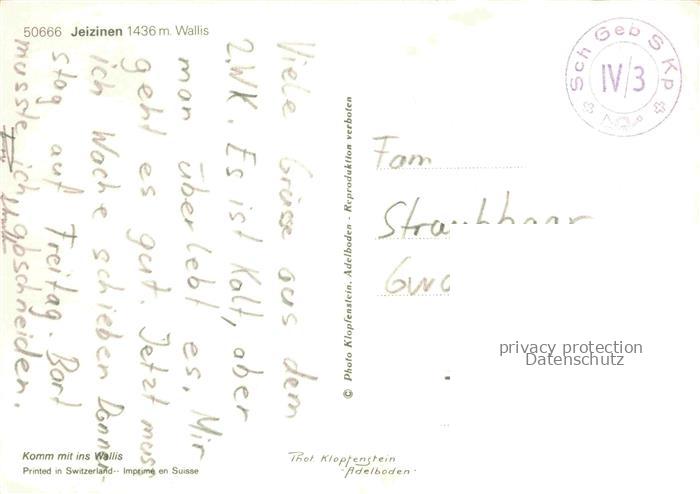 50666 Jeizinen 1436 m. Wallis
Viele Grüsse aus dem
2.WK. Es ist Kalt, aber
man überlebt es. Mir
geht es gut. Jetzt muss
ich Wache schieben Donner-
stag auf Freitag. Bart
musste ich abschneiden.
Komm mit ins Wallis
Printed in Switzerland - Imprimé en Suisse
© Photo Klopfenstein, Adelboden - Reproduktion verboten
Sch Geb S Kp
IV/3
Fam
privacy protection
Datenschutz
Phot. Klopfenstein
- Adelboden -